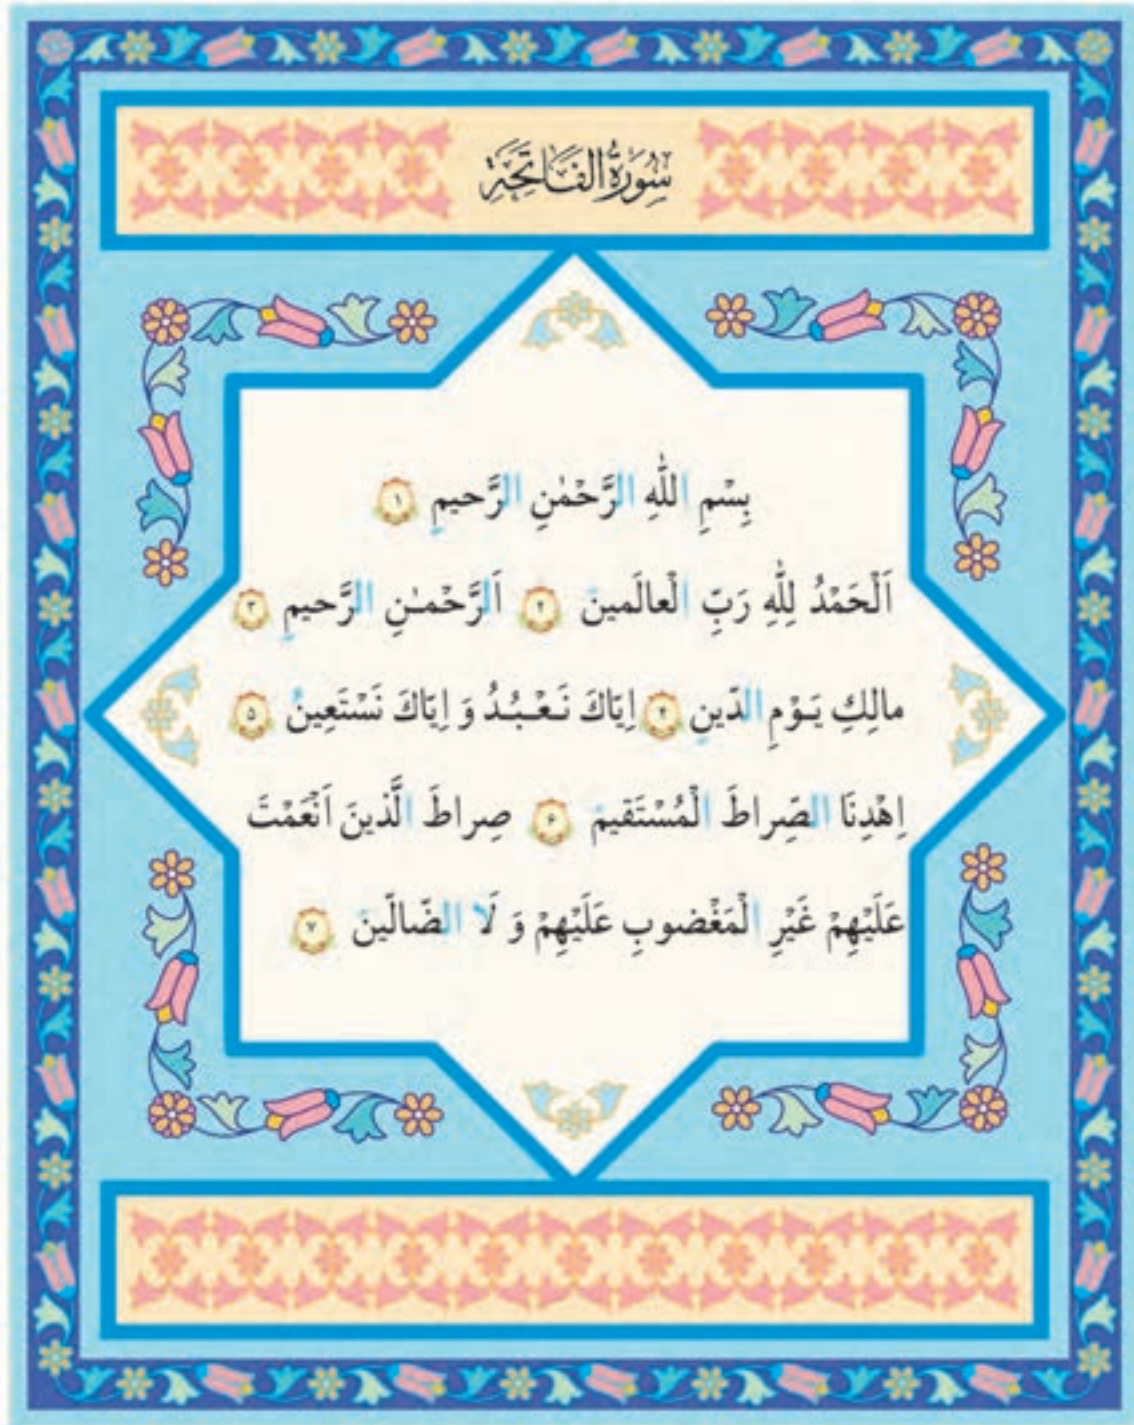 سُورَةُ الفَاتِحَةِ
بِسْمِ اللّٰهِ الرَّحْمٰنِ الرَّحيمِ ١
اَلْحَمْدُ لِلّٰهِ رَبِّ الْعالَمينَ ٢ اَلرَّحْمـٰنِ الرَّحيمِ ٣
مالِكِ يَـوْمِ الدّينِ ۴ اِيّاكَ نَـعْـبُـدُ وَ اِيّاكَ نَسْتَعينُ ۵
اِهْدِنَا الصِّراطَ الْمُسْتَقيمَ ۶ صِراطَ الَّذينَ اَنْعَمْتَ
عَلَيْهِمْ غَيْرِ الْمَغْضوبِ عَلَيْهِمْ وَ لَا الضّالّينَ ٧